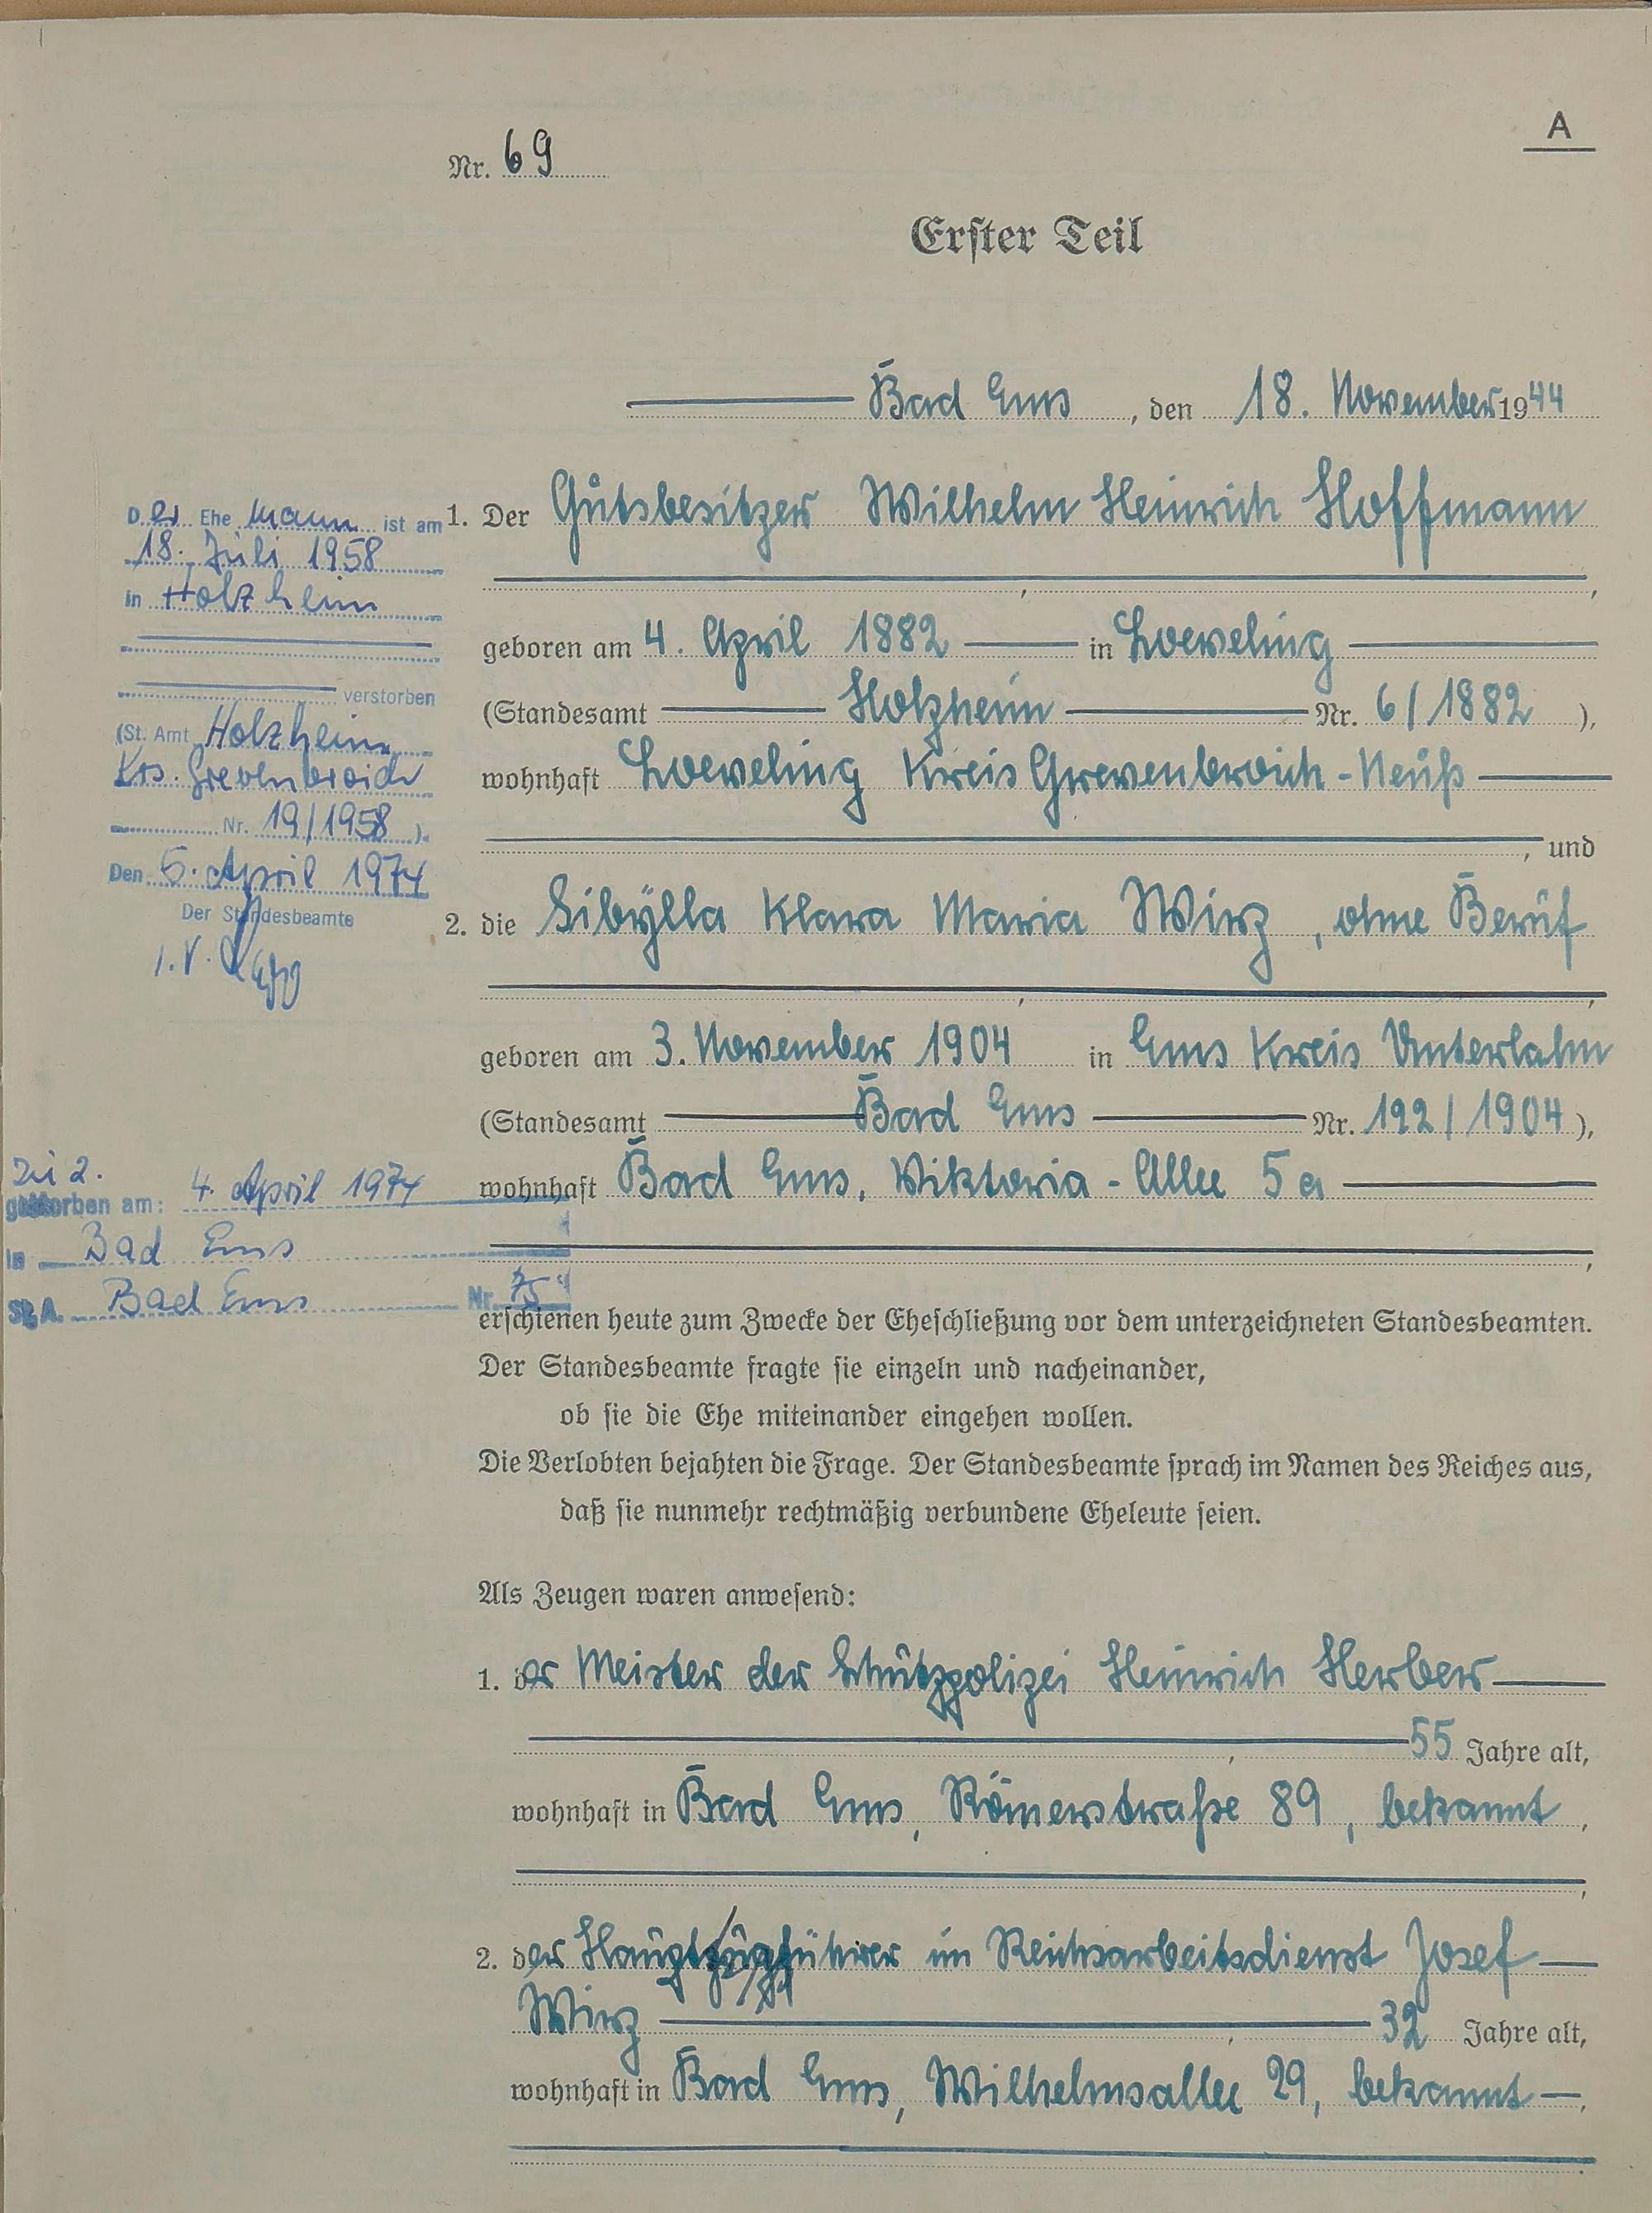 A
Nr. 69
Erster Teil
Bad Ems, den 18. November 1944
1. Der Gutsbesitzer Wilhelm Heinrich Hoffmann
,
geboren am 4. April 1882 in Loeveling
(Standesamt Holzheim Nr. 6/1882),
wohnhaft Loeveling Kreis Grevenbroich-Neuß
, und
2. die Sibylla Klara Maria Wirz, ohne Beruf
,
geboren am 3. November 1904 in Ems Kreis Unterlahn
(Standesamt Bad Ems Nr. 192/1904),
wohnhaft Bad Ems, Viktoria-Allee 5a
,
erschienen heute zum Zwecke der Eheschließung vor dem unterzeichneten Standesbeamten.
Der Standesbeamte fragte sie einzeln und nacheinander,
ob sie die Ehe miteinander eingehen wollen.
Die Verlobten bejahten die Frage. Der Standesbeamte sprach im Namen des Reiches aus,
daß sie nunmehr rechtmäßig verbundene Eheleute seien.
Als Zeugen waren anwesend:
1. der Meister der Schutzpolizei Heinrich Herber
55 Jahre alt,
wohnhaft in Bad Ems, Römerstraße 89, bekannt,
,
2. der Haupt führer im Reichsarbeitsdienst Josef
Wirz 32 Jahre alt,
wohnhaft in Bad Ems, Wilhelmsallee 29, bekannt,
.
Der Ehemann ist am
18. Juli 1958
in Holzheim
verstorben
(St. Amt Holzheim
Krs. Grevenbroich
Nr. 19/1958).
Den 5. April 1974
Der Standesbeamte
I.V.
Zu 2.
gestorben am: 4. April 1974
in Bad Ems
St.A. Bad Ems Nr. 75